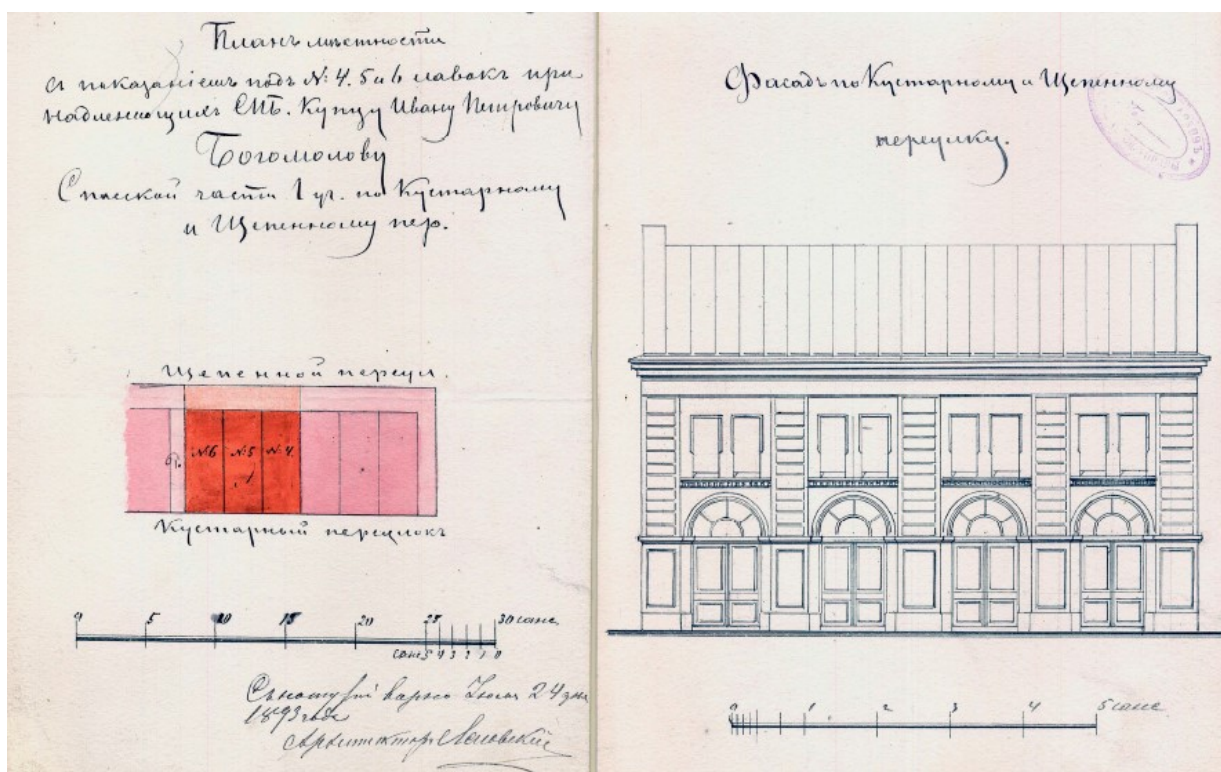 Планъ мѣстности
съ показаніемъ подъ №: 4. 5 и 6 лавокъ при
надлежащихъ СПБ. Купцу Ивану Петровичу
Богомолову
Спаской части 1 уч. по Кустарному
и Щепенному пер.
Щепенной переул.
№6 №:5 №:4.
Кустарный переулокъ
0 5 10 15 20 25 30 саже.
саже 5 4 3 2 1 0
Іюля 24 дня
1893 года
Архитекторъ
Фасадъ по Кустарному и Щепенному
переулку.
0 1 2 3 4 5 саже.